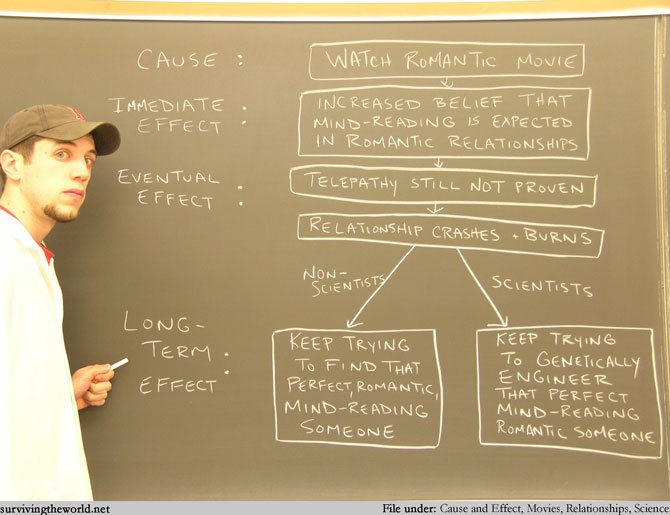 CAUSE :
WATCH ROMANTIC MOVIE
IMMEDIATE
EFFECT :
INCREASED BELIEF THAT
MIND-READING IS EXPECTED
IN ROMANTIC RELATIONSHIPS
EVENTUAL
EFFECT :
TELEPATHY STILL NOT PROVEN
RELATIONSHIP CRASHES + BURNS
NON-
SCIENTISTS
SCIENTISTS
LONG-
TERM
EFFECT :
KEEP TRYING
TO FIND THAT
PERFECT, ROMANTIC,
MIND-READING
SOMEONE
KEEP TRYING
TO GENETICALLY
ENGINEER
THAT PERFECT
MIND-READING
ROMANTIC SOMEONE
survivingtheworld.net
File under: Cause and Effect, Movies, Relationships, Science